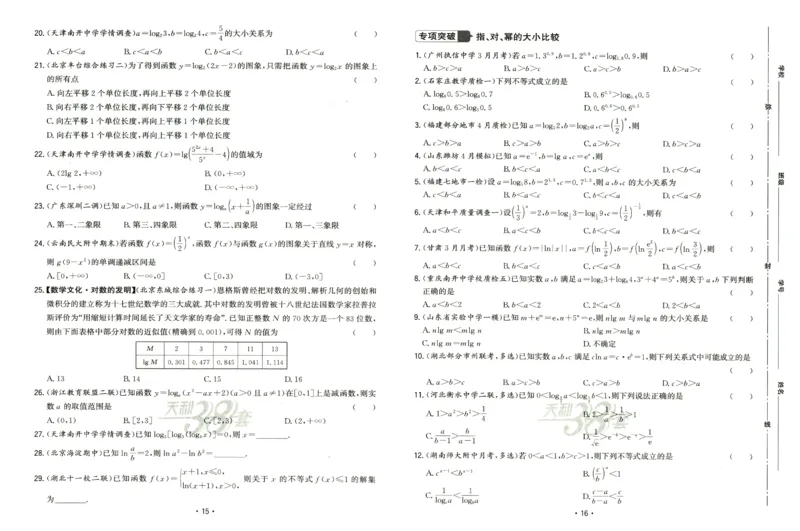 20.(天津南开中学学情调查)a=log₂3,b=log₂4,c=5/4的大小关系为 ( )
A.c<b<a B.c<a<b C.b<a<c D.b<c<a
21.(北京丰台综合练习二)为了得到函数 y=log₂(2x-2)的图象,只需把函数 y=log₂x 的图象上
的所有点 ( )
A.向左平移2个单位长度,再向上平移2个单位长度
B.向右平移2个单位长度,再向下平移2个单位长度
C.向左平移1个单位长度,再向上平移1个单位长度
D.向右平移1个单位长度,再向上平移1个单位长度
22.(天津南开中学学情调查)函数 f(x)=lg((5²ˣ+4)/5ˣ-4)的值域为 ( )
A.(2lg 2,+∞) B.(0,+∞)
C.(-1,+∞) D.(-∞,+∞)
23.(广东深圳二调)已知 a>0,且 a≠1,则函数 y=logₐ(x+1/a)的图象一定经过 ( )
A.第一、二象限 B.第三、四象限 C.第二、四象限 D.第一、三象限
24.(云南民大附中期末)若函数 f(x)=(1/2)ˣ,函数 f(x)与函数 g(x)的图象关于直线 y=x 对称,
则 g(9-x²)的单调递减区间是 ( )
A.[0,+∞) B.(-∞,0] C.[0,3) D.(-3,0]
25.【数学文化·对数的发明】(北京东城综合练习一)恩格斯曾经把对数的发明、解析几何的创始和
微积分的建立称为十七世纪数学的三大成就.其中对数的发明曾被十八世纪法国数学家拉普拉
斯评价为“用缩短计算时间延长了天文学家的寿命”.已知正整数 N 的70次方是一个83位数,
则由下面表格中部分对数的近似值(精确到0.001),可得 N 的值为 ( )
M 2 3 7 11 13
lg M 0.301 0.477 0.845 1.041 1.114
A.13 B.14 C.15 D.16
26.(浙江教育联盟二联)已知函数 y=logₐ(x²-ax+2)(a>0 且 a≠1)在[0,1]上是减函数,则实
数 a 的取值范围是 ( )
A.(0,1) B.[2,3] C.[2,3) D.(2,+∞)
27.(天津南开中学学情调查)已知 log₂[log₃(log₄x)]=0,则 x=______.
28.(北京海淀期中)已知 ln a/b=2,则 ln a²-ln b²=______.
29.(湖北十一校二联)已知函数 f(x)={x+1,x≤0, ln(x+1),x>0, 则关于 x 的不等式 f(x)≤1 的解集
为______.
· 15 ·
专项突破 指、对、幂的大小比较
1.(广州执信中学3月月考)若 a=1.3⁰·⁹,b=1.2⁰·⁹,c=log₁.₃0.9,则 ( )
A.b>c>a B.a>b>c C.a>c>b D.b>a>c
2.(石家庄教学质检一)下列不等式成立的是 ( )
3.(福建部分地市4月质检)已知
,则 ( )
A.c>b>a B.b>a>c C.a>b>c D.b>c>a
4.(山东潍坊4月模拟)已知 a=e⁻¹,b=lg a,c=eᵃ,则 ( )
A.b<a<c B.b<c<a C.a<b<c D.c<b<a
5.(福建七地市一检)设
,则 a,b,c 的大小关系为 ( )
A.c<b<a B.b<a<c C.b<c<a D.c<a<b
6.(天津和平质量调查一)设
,则有 ( )
A.a<b<c B.a<c<b C.b<c<a D.b<a<c
7.(甘肃3月月考)已知函数 f(x)=|ln|x||,
,则 ( )
A.a<b<c B.b<a<c C.c<a<b D.a<c<b
8.(重庆南开中学校质检五)已知实数 a,b 满足 a=log₂3+log₈4,3ᵃ+4ᵃ=5ᵇ,则关于 a,b 下列判断
正确的是 ( )
A.a<b<2 B.b<a<2 C.2<a<b D.2<b<a
9.(山东省实验中学一模)已知 m+eᵐ=e,n+5ⁿ=e,则 nlg m 与 mlg n 的大小关系是 ( )
A.nlg m<mlg n B.nlg m>mlg n
C.nlg m=mlg n D.不确定
10.(湖北部分市州联考,多选)已知实数 a,b,c 满足 cln a=c·eᵇ=1,则下列关系式中可能成立的是
( )
A.a>b>c B.a>c>b C.c>a>b D.c>b>a
11.(河北衡水中学二联,多选)已知
,则下列说法正确的是 ( )
A.1>a²>b²>1/4
C.a/(b-1)>b/(a-1)
12.(湖南师大附中月考,多选)若 0<a<1,b>c>1,则下列不等式成立的是 ( )
A.cᵃ⁻¹<bᵃ⁻¹ B.(c/b)ᵃ<1
C.1/log꜀a<1/log_b a D.(c-a)/(b-a)<c/b
· 16 ·
学校
班级
学号
姓名
弥
封
线
天利38套
天利38套